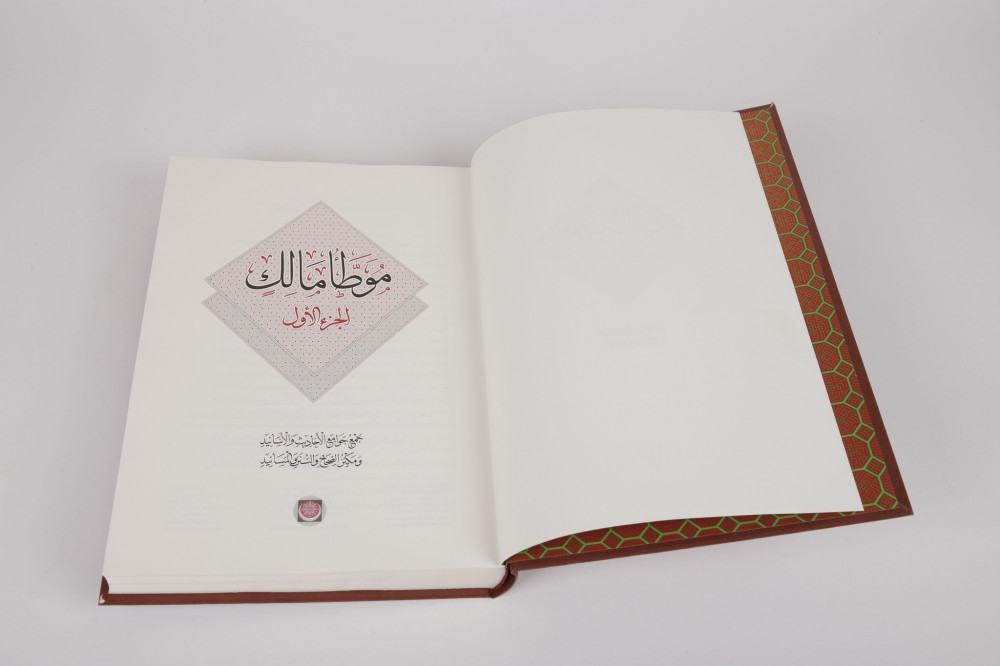 مُوَطَّأ مَالِكٍ
الجزء الأول
جَمْعُ جَوَامِعِ الأَحَادِيثِ وَالأَسَانِيدِ
وَمَكْنِزُ الصِّحَاحِ وَالسُّنَنِ وَالْمَسَانِيدِ